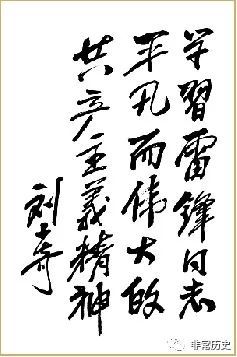 学習雷锋同志
平凡而伟大的
共产主義精神
刘少奇
非常历史